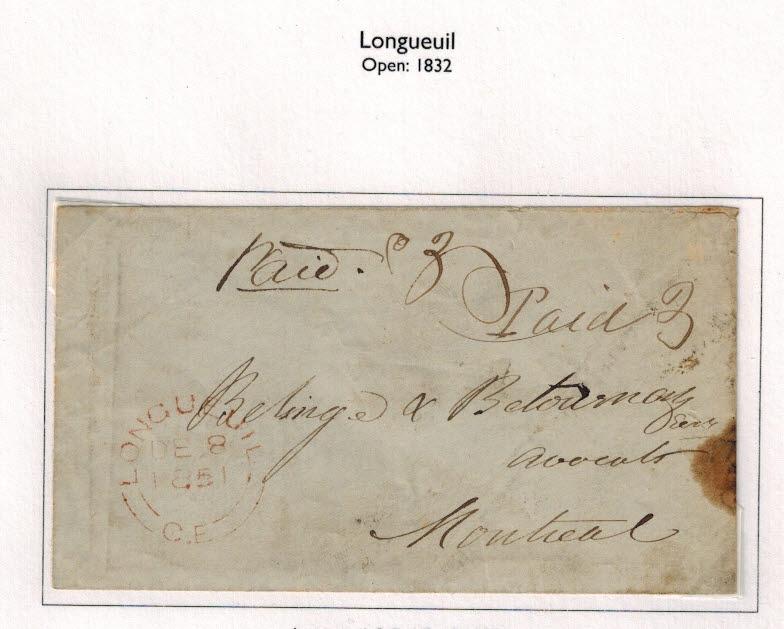 Longueuil
Open: 1832
Paid. 3
Paid 3
Belinge & Betournay
avocats
Montreal
LONGUEUIL
DE 8
1851
C.E